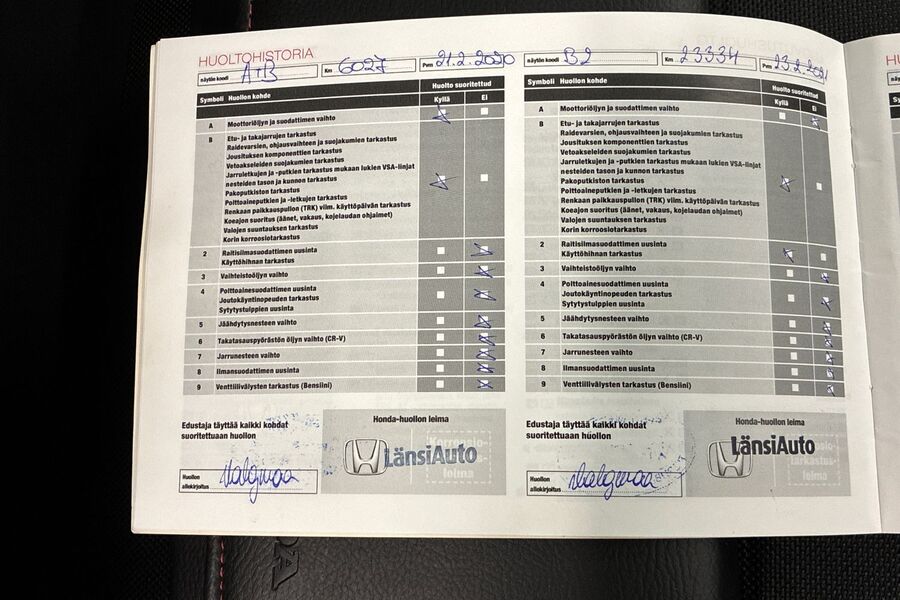 HUOLTOHISTORIA
näytön koodi A+B Km 6027 Pvm 21.2.2020
Symboli Huollon kohde Huolto suoritettud
Kyllä Ei
A Moottoriöljyn ja suodattimen vaihto
B Etu- ja takajarrujen tarkastus
Raidevarsien, ohjausvaihteen ja suojakumien tarkastus
Jousituksen komponenttien tarkastus
Vetoakseleiden suojakumien tarkastus
Jarruletkujen ja -putkien tarkastus mukaan lukien VSA-linjat
nesteiden tason ja kunnon tarkastus
Pakoputkiston tarkastus
Polttoaineputkien ja -letkujen tarkastus
Renkaan paikkauspullon (TRK) viim. käyttöpäivän tarkastus
Koeajon suoritus (äänet, vakaus, kojelaudan ohjaimet)
Valojen suuntauksen tarkastus
Korin korroosiotarkastus
2 Raitisilmasuodattimen uusinta
Käyttöhihnan tarkastus
3 Vaihteistoöljyn vaihto
4 Polttoainesuodattimen uusinta
Joutokäyntinopeuden tarkastus
Sytytystulppien uusinta
5 Jäähdytysnesteen vaihto
6 Takatasauspyörästön öljyn vaihto (CR-V)
7 Jarrunesteen vaihto
8 Ilmansuodattimen uusinta
9 Venttiilivälysten tarkastus (Bensiini)
Edustaja täyttää kaikki kohdat
suoritettuaan huollon
Huollon
allekirjoitus
Honda-huollon leima
Korroosio-
leima
LänsiAuto
näytön koodi B2 Km 23334 Pvm 23.2.2021
Symboli Huollon kohde Huolto suoritettud
Kyllä Ei
A Moottoriöljyn ja suodattimen vaihto
B Etu- ja takajarrujen tarkastus
Raidevarsien, ohjausvaihteen ja suojakumien tarkastus
Jousituksen komponenttien tarkastus
Vetoakseleiden suojakumien tarkastus
Jarruletkujen ja -putkien tarkastus mukaan lukien VSA-linjat
nesteiden tason ja kunnon tarkastus
Pakoputkiston tarkastus
Polttoaineputkien ja -letkujen tarkastus
Renkaan paikkauspullon (TRK) viim. käyttöpäivän tarkastus
Koeajon suoritus (äänet, vakaus, kojelaudan ohjaimet)
Valojen suuntauksen tarkastus
Korin korroosiotarkastus
2 Raitisilmasuodattimen uusinta
Käyttöhihnan tarkastus
3 Vaihteistoöljyn vaihto
4 Polttoainesuodattimen uusinta
Joutokäyntinopeuden tarkastus
Sytytystulppien uusinta
5 Jäähdytysnesteen vaihto
6 Takatasauspyörästön öljyn vaihto (CR-V)
7 Jarrunesteen vaihto
8 Ilmansuodattimen uusinta
9 Venttiilivälysten tarkastus (Bensiini)
Edustaja täyttää kaikki kohdat
suoritettuaan huollon
Huollon
allekirjoitus
Honda-huollon leima
LänsiAuto
tarkastus-
leima